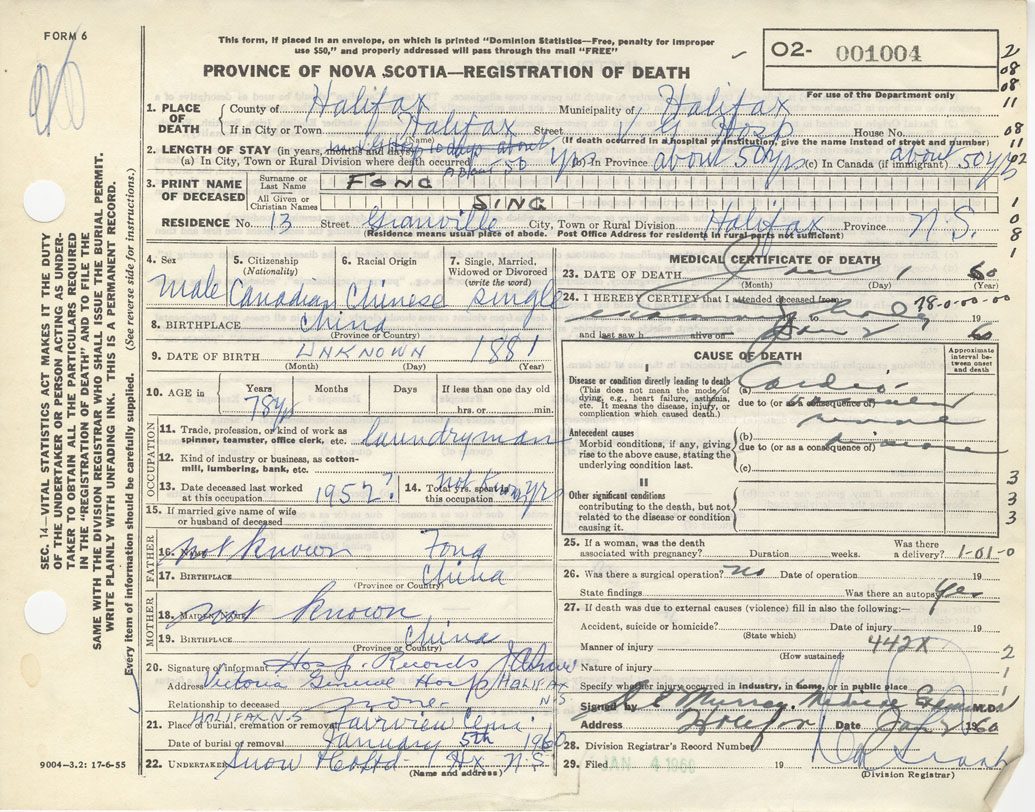 FORM 6
This form, if placed in an envelope, on which is printed "Dominion Statistics—Free, penalty for improper
use $50," and properly addressed will pass through the mail "FREE"
O2- 001004
For use of the Department only
PROVINCE OF NOVA SCOTIA—REGISTRATION OF DEATH
1. PLACE OF DEATH
County of Halifax Municipality of Halifax
If in City or Town Halifax Street V. G. Hosp House No.
(Name) (If death occurred in a hospital or institution, give the name instead of street and number)
2. LENGTH OF STAY (in years, months and days)
(a) In City, Town or Rural Division where death occurred About 50 yrs (b) in Province about 50 yrs (c) In Canada (if immigrant) about 50 yrs
3. PRINT NAME OF DECEASED
Surname or Last Name FONG
All Given or Christian Names SING
RESIDENCE No. 13 Street Granville City, Town or Rural Division Halifax Province N.S.
(Residence means usual place of abode. Post Office Address for residents in rural parts not sufficient)
4. Sex
5. Citizenship (Nationality)
6. Racial Origin
7. Single, Married, Widowed or Divorced (write the word)
Male Canadian Chinese single
8. BIRTHPLACE China
(Province or Country)
9. DATE OF BIRTH UNKNOWN 1881
(Month) (Day) (Year)
10. AGE in Years Months Days If less than one day old
78 yrs hrs. or min.
OCCUPATION
11. Trade, profession, or kind of work as spinner, teamster, office clerk, etc. laundryman
12. Kind of industry or business, as cotton-mill, lumbering, bank, etc.
13. Date deceased last worked at this occupation 1952?
14. Total yrs. spent in this occupation Not Known yrs
15. If married give name of wife or husband of deceased
FATHER
16. Name not known Fong
17. BIRTHPLACE China
(Province or Country)
MOTHER
18. MAIDEN NAME not known
19. BIRTHPLACE China
(Province or Country)
20. Signature of informant Hosp. Records
Address Victoria General Hosp HALIFAX N.S.
Relationship to deceased none
21. Place of burial, cremation or removal HALIFAX N.S Fairview Cem.
Date of burial or removal January 5th 1960
22. UNDERTAKER Snow & Co Ltd Hx N.S
(Name and address)
MEDICAL CERTIFICATE OF DEATH
23. DATE OF DEATH Jan 1 60
(Month) (Day) (Year)
24. I HEREBY CERTIFY that I attended deceased from 78-0-00-00
to 19
and last saw h alive on Jan 2 60
CAUSE OF DEATH
Approximate interval between onset and death
I
Disease or condition directly leading to death
(This does not mean the mode of dying, e.g., heart failure, asthenia, etc. It means the disease, injury, or complication which caused death.)
(a) Cardio-
due to (or as a consequence of) vascular
renal
Antecedent causes
Morbid conditions, if any, giving rise to the above cause, stating the underlying condition last.
(b) disease
due to (or as a consequence of)
(c)
II
Other significant conditions
contributing to the death, but not related to the disease or condition causing it.
25. If a woman, was the death associated with pregnancy? Duration weeks. Was there a delivery? 1-01-0
26. Was there a surgical operation? no Date of operation 19
State findings Was there an autopsy yes
27. If death was due to external causes (violence) fill in also the following:—
Accident, suicide or homicide? Date of injury 19
(State which)
Manner of injury 442X
(How sustained)
Nature of injury
Specify whether injury occurred in industry, in home, or in public place
Signed by E Murray M.D.
Address Halifax Date Jan 2 1960
28. Division Registrar's Record Number
29. Filed JAN 4 1960 19
(Division Registrar)
2
08
08
11
08
11
02
1
0
8
1
3
3
3
3
2
1
1
SEC. 14—VITAL STATISTICS ACT MAKES IT THE DUTY
OF THE UNDERTAKER OR PERSON ACTING AS UNDER-
TAKER TO OBTAIN ALL THE PARTICULARS REQUIRED
IN THE "REGISTRATION OF DEATH" AND TO FILE THE
SAME WITH THE DIVISION REGISTRAR WHO SHALL ISSUE THE BURIAL PERMIT.
WRITE PLAINLY WITH UNFADING INK. THIS IS A PERMANENT RECORD.
Every item of information should be carefully supplied. (See reverse side for instructions.)
9004-3.2: 17-6-55